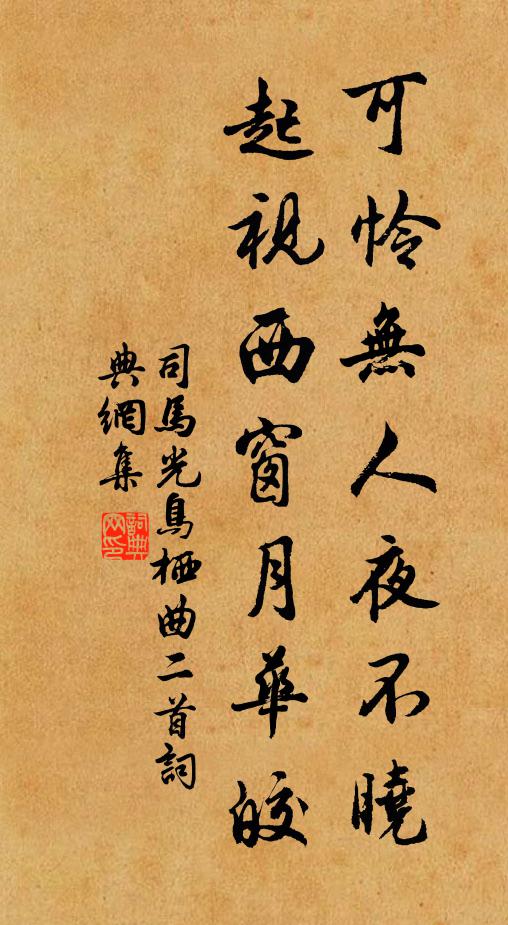 可怜無人夜不曉
起視西窗月華皎
司馬光烏栖曲二首詞
典網集
詞典網印